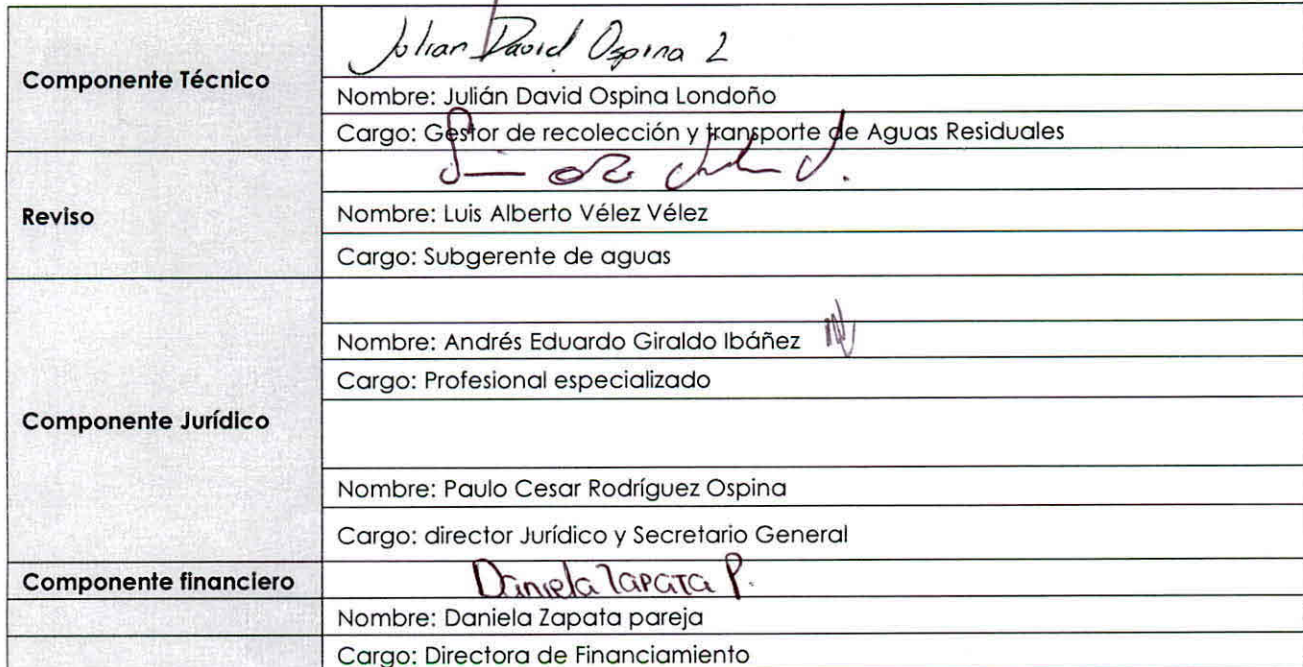 Componente Técnico
Julian David Ospina L
Nombre: Julián David Ospina Londoño
Cargo: Gestor de recolección y transporte de Aguas Residuales
Reviso
Nombre: Luis Alberto Vélez Vélez
Cargo: Subgerente de aguas
Componente Jurídico
Nombre: Andrés Eduardo Giraldo Ibáñez
Cargo: Profesional especializado
Nombre: Paulo Cesar Rodríguez Ospina
Cargo: director Jurídico y Secretario General
Componente financiero
Daniela Zapata P.
Nombre: Daniela Zapata pareja
Cargo: Directora de Financiamiento